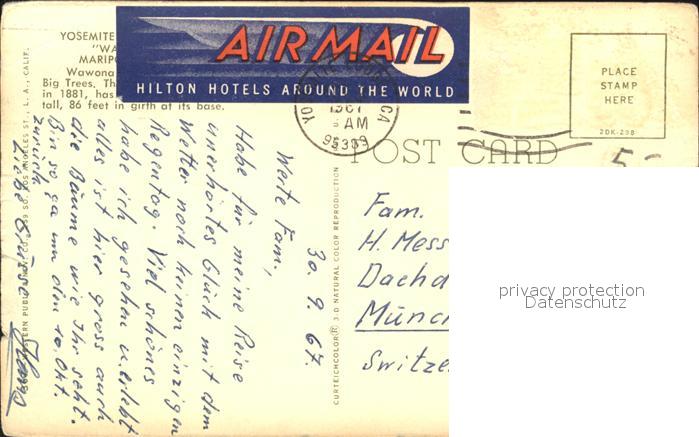 YOSEMITE
"WA
MARIPO
Wawona
Big Trees. Th
in 1881, has
tall, 86 feet in girth at its base.
AIR MAIL
HILTON HOTELS AROUND THE WORLD
YO
CA
1967
AM
95389
PLACE
STAMP
HERE
2DK-298
POST CARD
5
30. 9. 67.
Werte Fam.,
Habe für meine Reise
unerhörtes Glück mit dem
Wetter noch keinen einzigen
Regentag. Viel schönes
habe ich gesehen u. erlebt
alles ist hier gross auch
die Bäume wie Ihr seht.
Bin so ca um den 10. Okt.
zurück
Liebe Grüsse
CURTEICHCOLOR® 3-D NATURAL COLOR REPRODUCTION
Fam.
H. Mess
Dacha
Münc
Switze
privacy protection
Datenschutz